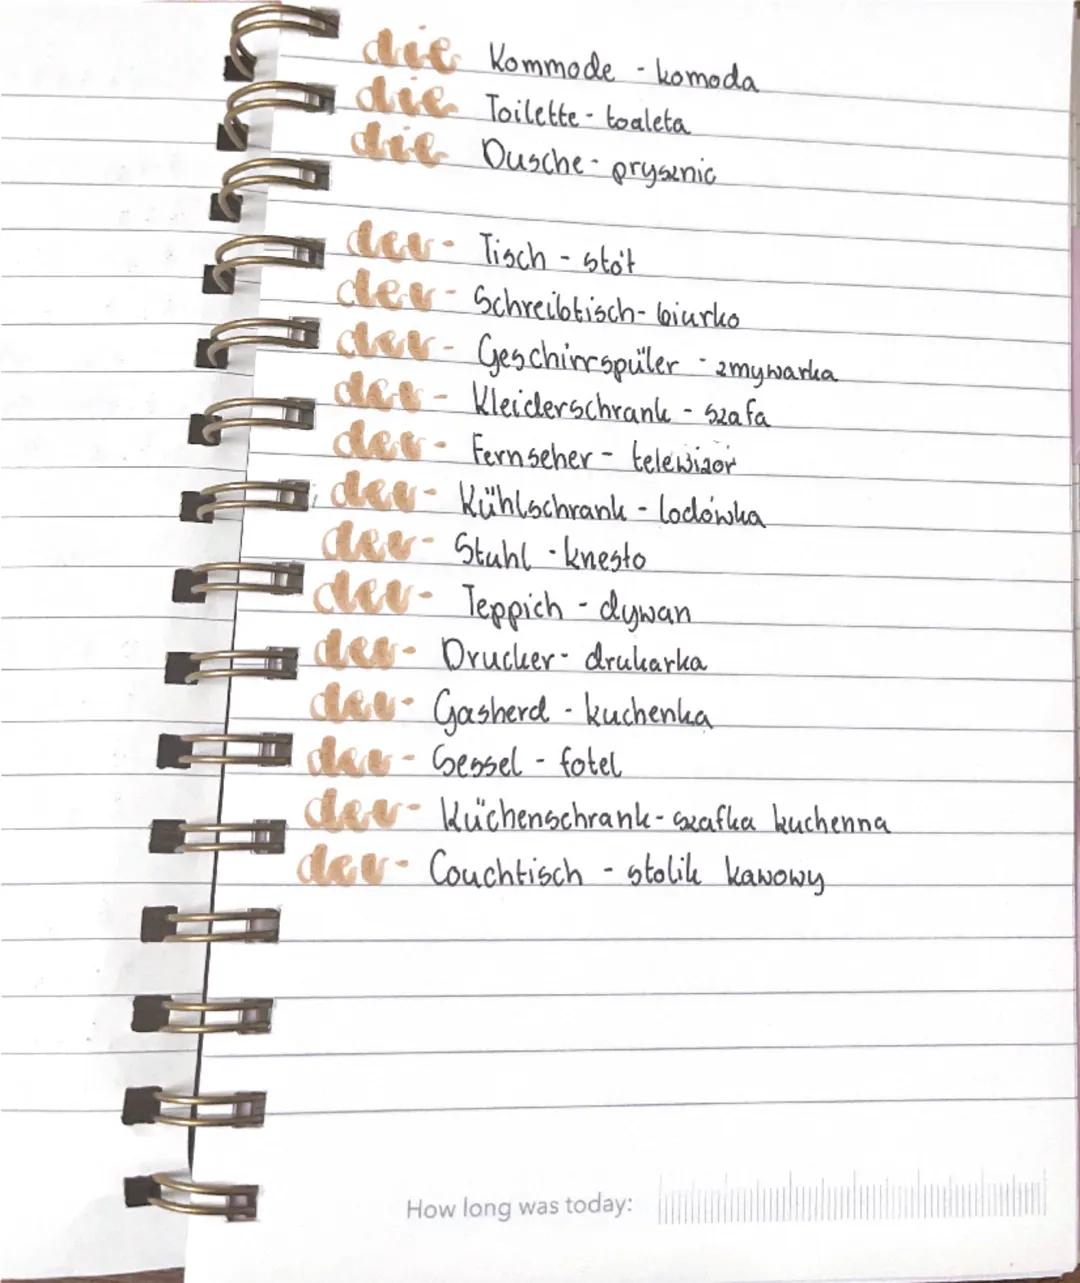 die Kommode - komoda
die Toilette - toaleta
die Dusche - prysznic
der - Tisch - stół
der - Schreibtisch - biurko
der - Geschirrspüler - zmywarka
der - Kleiderschrank - szafa
der - Fernseher - telewizor
der - Kühlschrank - lodówka
der - Stuhl - krzesło
der - Teppich - dywan
der - Drucker - drukarka
der - Gasherd - kuchenka
der - Sessel - fotel
der - Küchenschrank - szafka kuchenna
der - Couchtisch - stolik kawowy
How long was today: